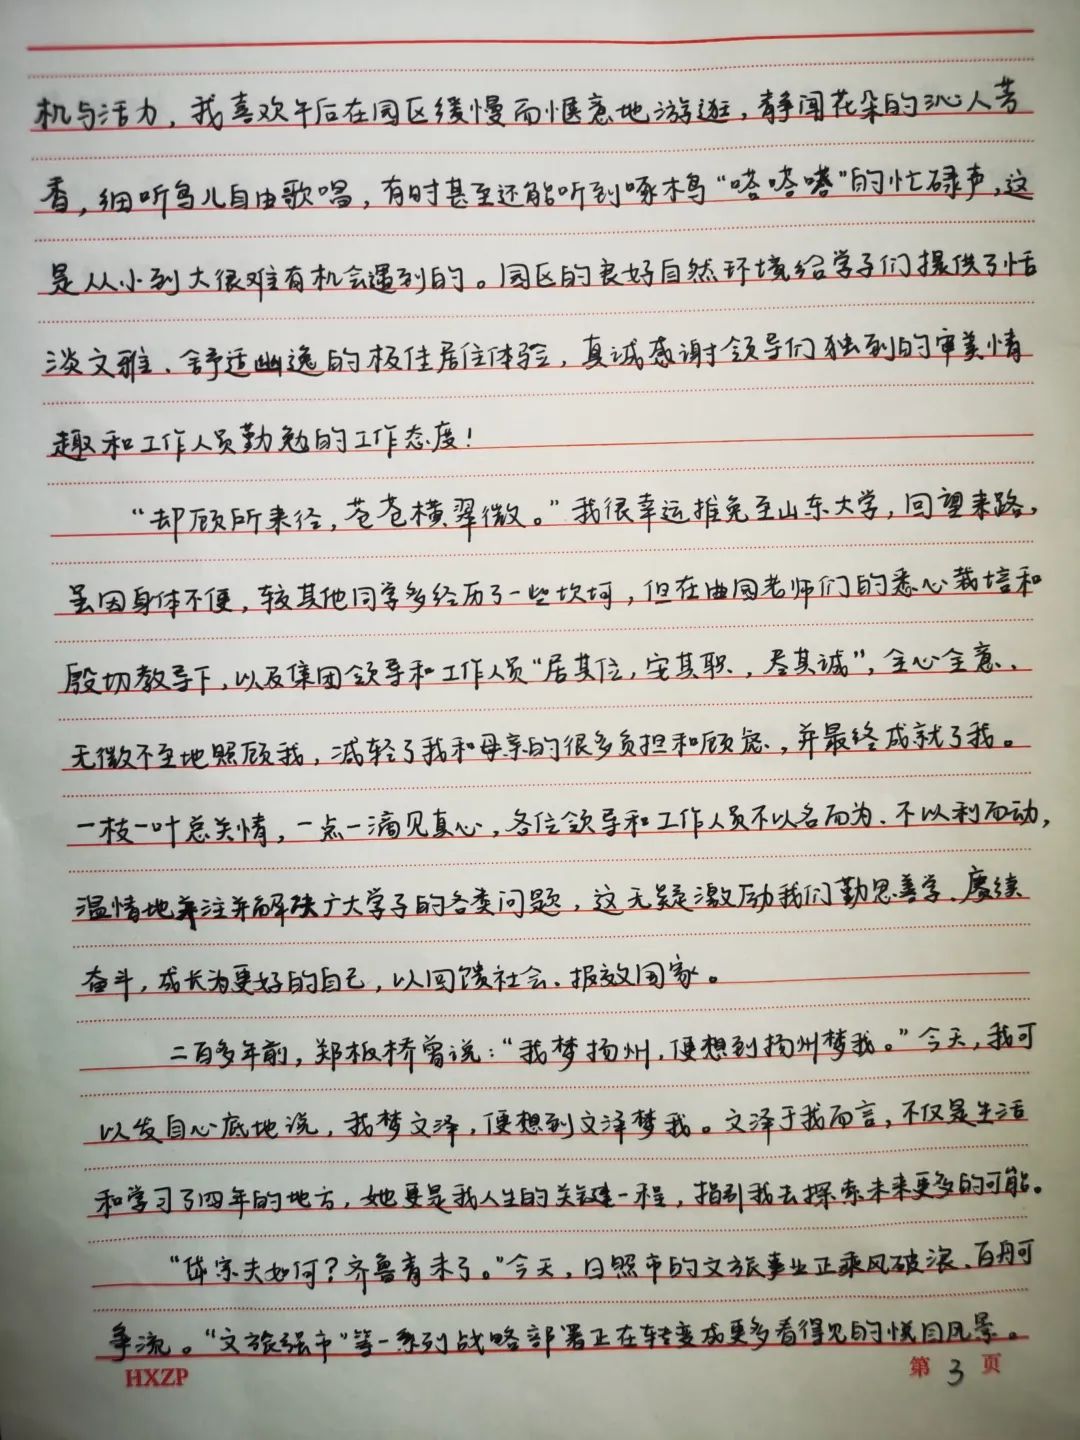 机与活力，我喜欢午后在园区缓慢而惬意地游逛，静闻花朵的沁人芳
香，细听鸟儿自由歌唱，有时甚至还能听到啄木鸟“嗒嗒嗒”的忙碌声，这
是从小到大很难有机会遇到的。园区的良好自然环境给学子们提供了恬
淡文雅、舒适幽逸的极佳居住体验，真诚感谢领导们独到的审美情
趣和工作人员勤勉的工作态度！
“却顾所来径，苍苍横翠微。”我很幸运推免至山东大学，回望来路，
虽因身体不便，较其他同学多经历了一些坎坷，但在曲园老师们的悉心栽培和
殷切教导下，以及集团领导和工作人员“居其位，安其职，尽其诚”，全心全意、
无微不至地照顾我，减轻了我和母亲的很多负担和顾虑，并最终成就了我。
一枝一叶总关情，一点一滴见真心，各位领导和工作人员不以名而为、不以利而动，
温情地关注并解决广大学子的各类问题，这无疑激励我们勤思善学、赓续
奋斗，成长为更好的自己，以回馈社会、报效国家。
二百多年前，郑板桥曾说：“我梦扬州，便想到扬州梦我。”今天，我可
以发自心底地说，我梦文泽，便想到文泽梦我。文泽于我而言，不仅是生活
和学习了四年的地方，她更是我人生的关键一程，指引我去探索未来更多的可能。
“岱宗夫如何？齐鲁青未了。”今天，日照市的文旅事业正乘风破浪、百舸可
争流。“文旅强市”等一系列战略部署正在转变成更多看得见的悦目风景。
HXZP
第3页